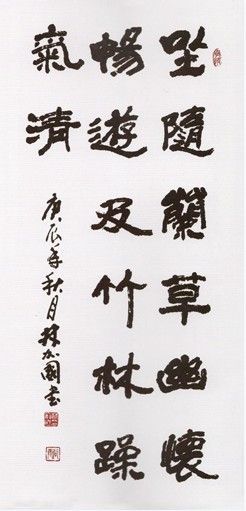 坐隨蘭草幽懷
暢遊及竹林躁
氣清
庚辰年秋月林公國書